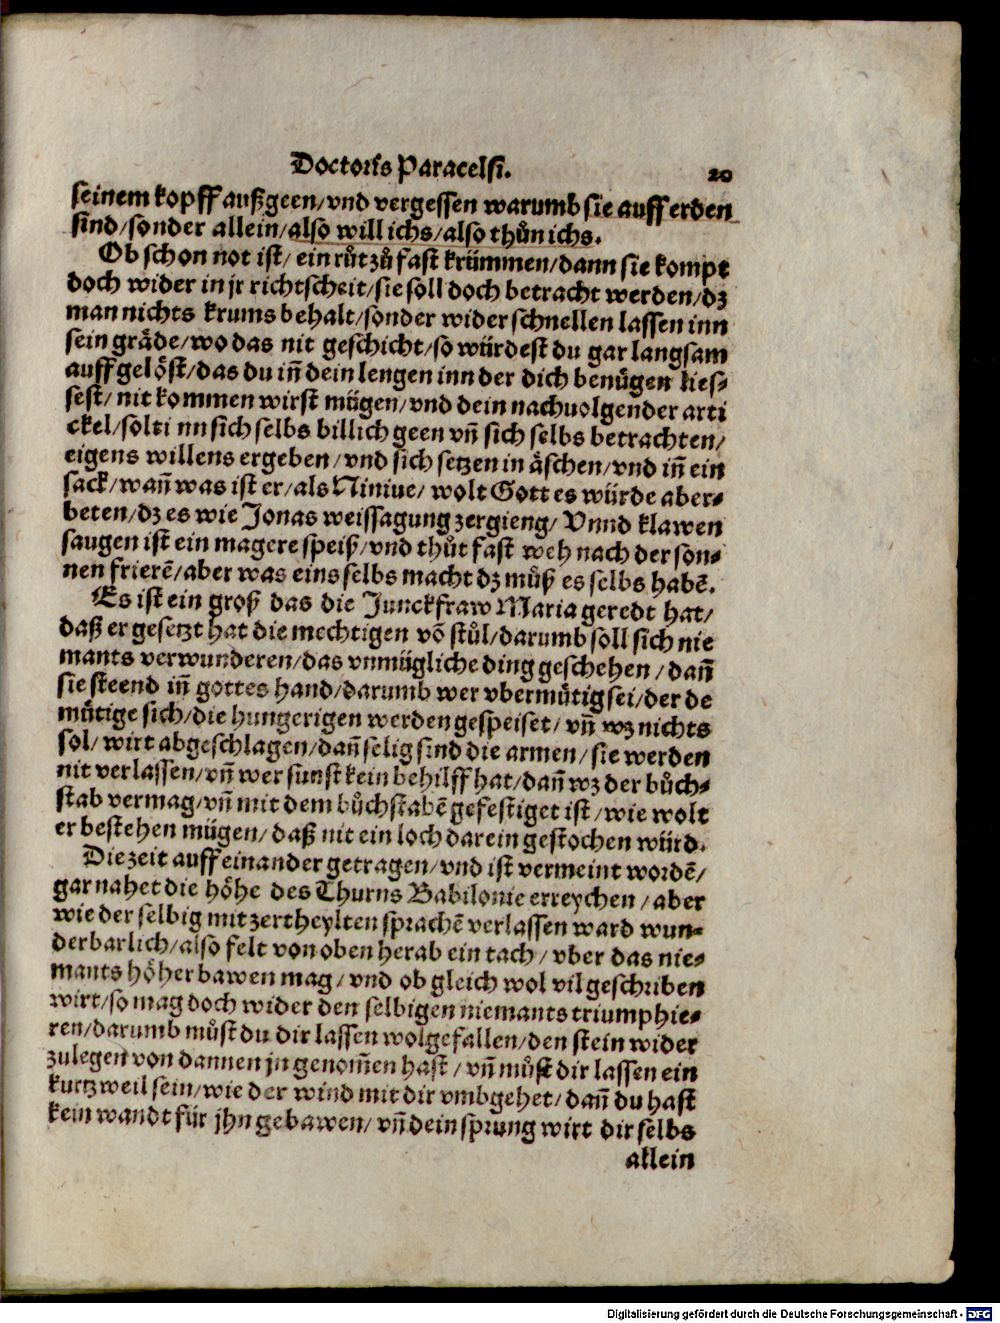 Doctoris Paracelsi. 20
seinem kopff außgeen/vnd vergessen warumb sie auff erden
sind/sonder allein/also will ichs/also thůn ichs.
Ob schon not ist/ ein růt zů fast krümmen/dann sie kompt
doch wider in jr richtscheit/sie soll doch betracht werden/dz
man nichts krums behalt/sonder wider schnellen lassen inn
sein gräde/wo das nit geschicht/so würdest du gar langsam
auffgelöst/das du iñ dein lengen inn der dich benügen lies-
sest/ nit kommen wirst mügen/vnd dein nachuolgender arti
ckel/solti nn sich selbs billich geen vñ sich selbs betrachten/
eigens willens ergeben/vnd sich setzen in äschen/vnd iñ ein
sack/wañ was ist er/als Niniue/ wolt Gott es würde aber-
beten/dz es wie Jonas weissagung zergieng/ Vnnd klawen
saugen ist ein magere speiß/vnd thůt fast weh nach der son-
nen frierē/aber was eins selbs macht dz můß es selbs habē.
Es ist ein groß das die Junckfraw Maria geredt hat/
daß er gesetzt hat die mechtigen võ stůl/darumb soll sich nie
mants verwunderen/das vnmügliche ding geschehen/dañ
sie steend iñ gottes hand/darumb wer vbermütig sei/der de
mütige sich/die hungerigen werden gespeiset/ vñ wz nichts
sol/ wirt abgeschlagen/dañ selig sind die armen/sie werden
nit verlassen/vñ wer sunst kein behilff hat/dañ wz der bůch-
stab vermag/vñ mit dem bůchstabē gefestiget ist/wie wolt
er bestehen mügen/ daß nit ein loch darein gestochen würd.
Die zeit auff einander getragen/vnd ist vermeint wordē/
gar nahet die höhe des Thurns Babilonie erreychen/aber
wie der selbig mit zertheylten sprachē verlassen ward wun-
derbarlich/also felt von oben herab ein tach/ vber das nie-
mants höher bawen mag/vnd ob gleich wol vil geschriben
wirt/so mag doch wider den selbigen niemants triumphie-
ren/darumb můst du dir lassen wolgefallen/den stein wider
zulegen von dannen jn genom̃en hast/vñ můst dir lassen ein
kurtzweil sein/wie der wind mit dir vmbgehet/dañ du hast
kein wandt für jhn gebawen/ vñ dein sprung wirt dir selbs
allein
Digitalisierung gefördert durch die Deutsche Forschungsgemeinschaft - DFG